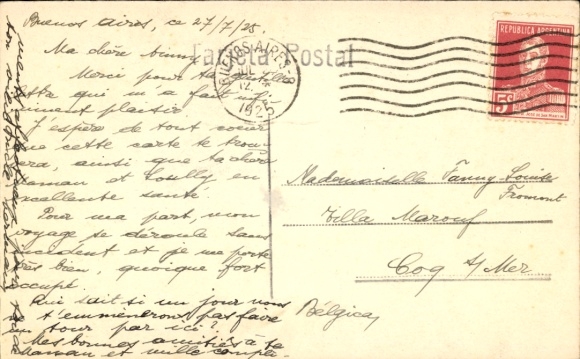 Buenos Aires, ce 27/7/25.
Ma chère
Tarjeta Postal
Merci pour ta
qui m'a fait un
plaisir.
J'espère de tout coeur
que cette carte te trou-
vera, ainsi que ta chère
maman et en
excellente santé.
Pour ma part, mon
voyage se déroule sans
incident et je me porte
très bien, quoique fort
occupé.
Qui sait si un jour nous
t'emmènerons pas faire
un tour par ici?
Mes bonnes amitiés à ta
Maman et mille
BUENOS AIRES
JUL
12
1925
REPUBLICA ARGENTINA
5c
Mademoiselle Fanny-Louise
Fromont
Villa Marouf
Coq s/Mer
Bélgica